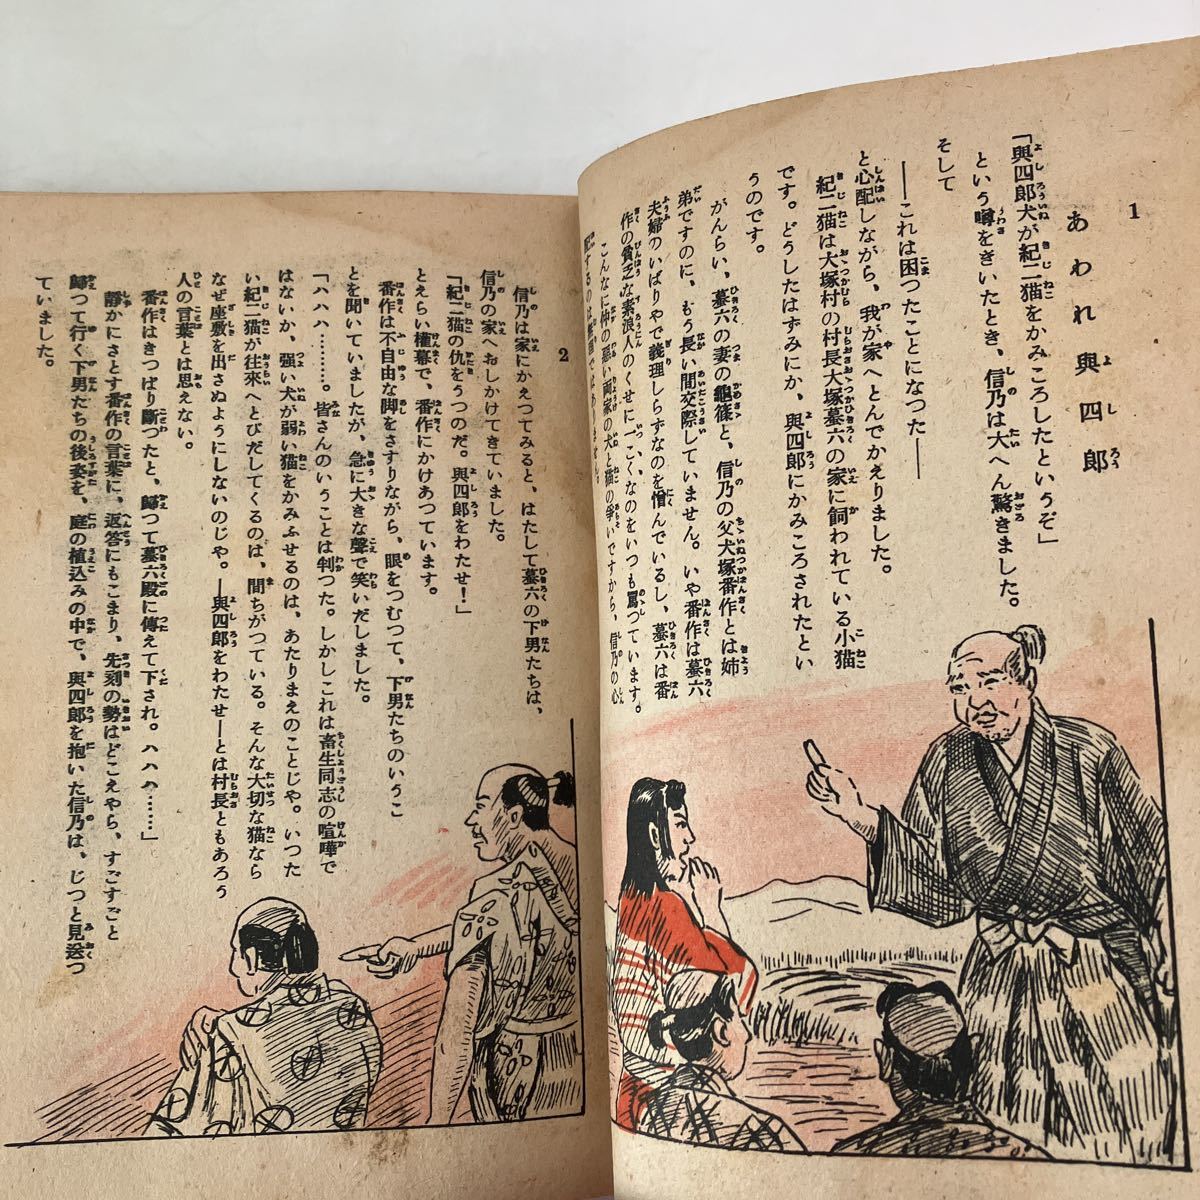 1
あわれ與四郎
「與四郎犬が紀二猫をかみころしたというぞ」
という噂をきいたとき、信乃は大へん驚きました。
そして
――これは困つたことになつた――
と心配しながら、我が家へとんでかえりました。
紀二猫は大塚村の村長大塚蟇六の家に飼われている小猫
です。どうしたはずみにか、與四郎にかみころされたとい
うのです。
がんらい、蟇六の妻の龜篠と、信乃の父犬塚番作とは姉
弟ですのに、もう長い間交際していません。いや番作は蟇六
夫婦のいばりやで義理しらずなのを憎んでいるし、蟇六は番
作の貧乏な素浪人のくせに一こくなのをいつも罵つています。
こんなに仲の悪い両家の犬と猫の爭いですから、信乃の心
配するのは無理ではありません。
2
信乃は家にかえつてみると、はたして蟇六の下男たちは、
信乃の家へおしかけてきていました。
「紀二猫の仇をうつのだ。與四郎をわたせ！」
とえらい權幕で、番作にかけあつています。
番作は不自由な脚をさすりながら、眼をつむつて、下男たちのいうこ
とを聞いていましたが、急に大きな聲で笑いだしました。
「ハハハ………。皆さんのいうことは判つた。しかしこれは畜生同志の喧嘩で
はないか、强い犬が弱い猫をかみふせるのは、あたりまえのことじや。いつた
い紀二猫が往來へとびだしてくるのは、間ちがつている。そんな大切な猫なら
なぜ座敷を出さぬようにしないのじや。―與四郎をわたせ―とは村長ともあろう
人の言葉とは思えない。
番作はきつぱり斷つたと、歸つて蟇六殿に傳えて下され。ハハハ………」
靜かにさとす番作の言葉に、返答にもこまり、先刻の勢はどこえやら、すごすごと
歸つて行く下男たちの後姿を、庭の植込みの中で、與四郎を抱いた信乃は、じつと見送つ
ていました。